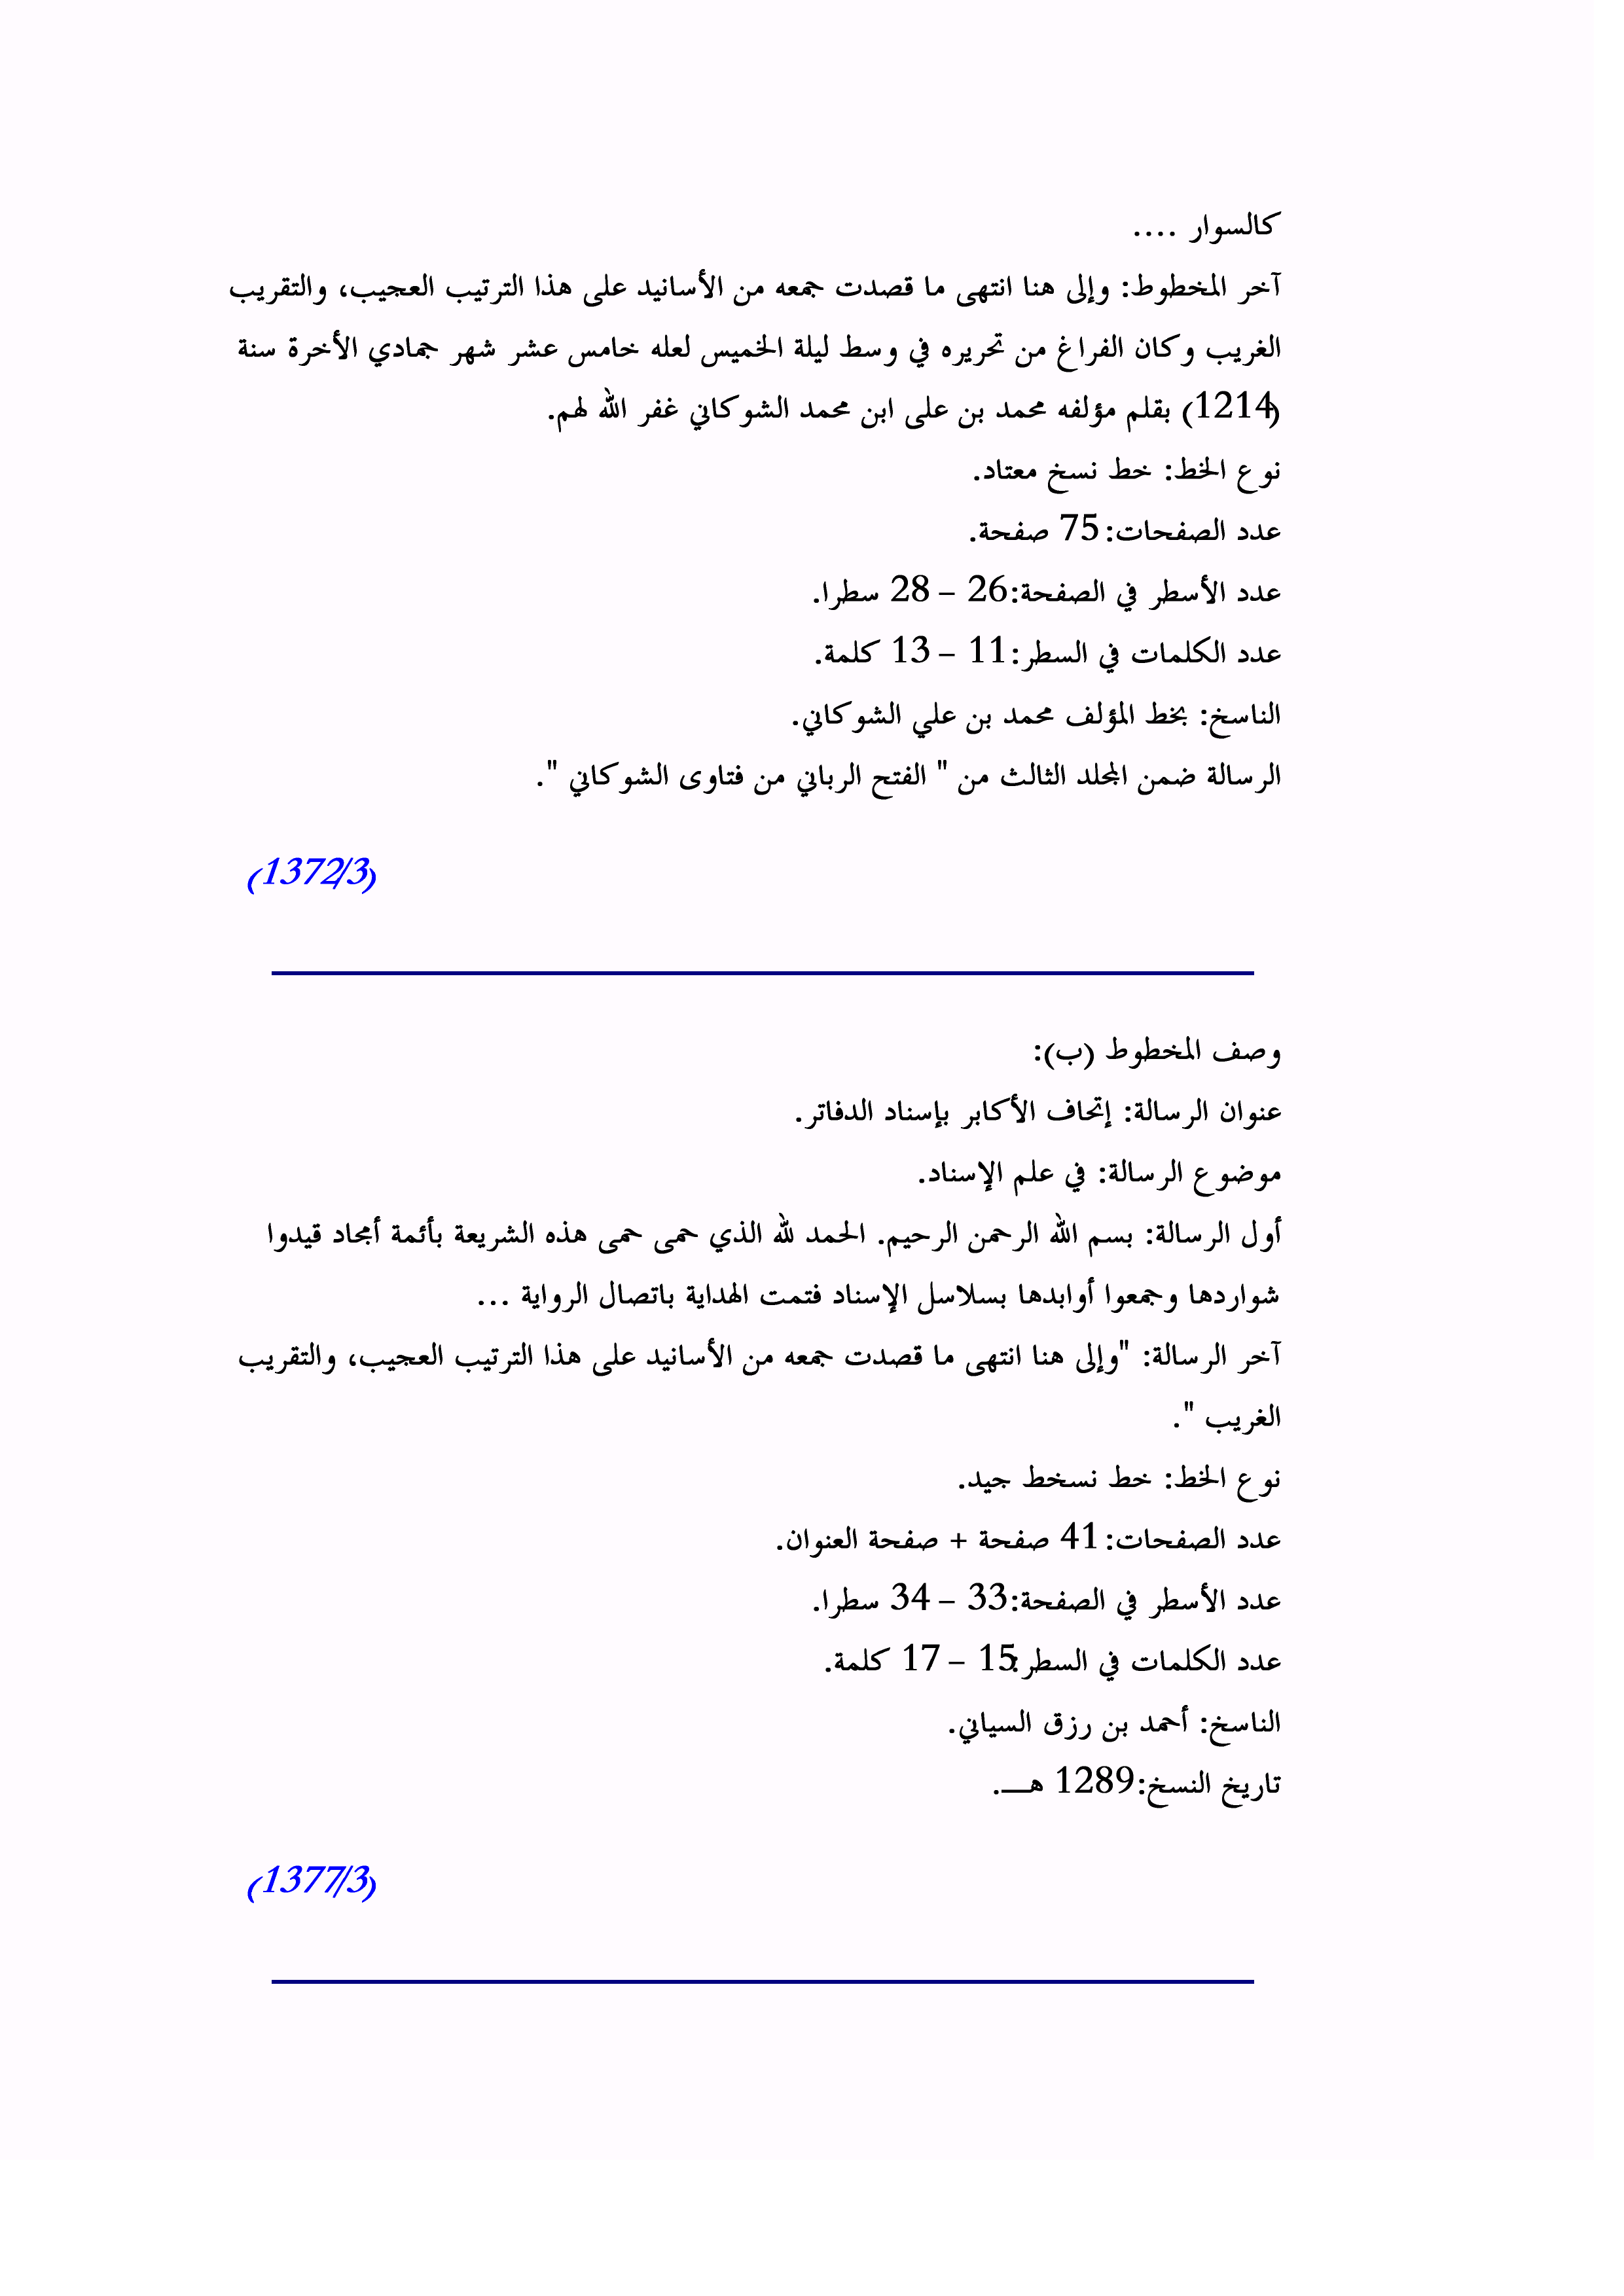 كالسوار ....
آخر المخطوط: وإلى هنا انتهى ما قصدت جمعه من الأسانيد على هذا الترتيب العجيب، والتقريب
الغريب وكان الفراغ من تحريره في وسط ليلة الخميس لعله خامس عشر شهر جمادي الأخرة سنة
(1214) بقلم مؤلفه محمد بن على ابن محمد الشوكاني غفر الله لهم.
نوع الخط: خط نسخ معتاد.
عدد الصفحات: 75 صفحة.
عدد الأسطر في الصفحة: 26 – 28 سطرا.
عدد الكلمات في السطر: 11 – 13 كلمة.
الناسخ: بخط المؤلف محمد بن علي الشوكاني.
الرسالة ضمن المجلد الثالث من " الفتح الرباني من فتاوى الشوكاني ".
(1372/3)
وصف المخطوط (ب):
عنوان الرسالة: إتحاف الأكابر بإسناد الدفاتر.
موضوع الرسالة: في علم الإسناد.
أول الرسالة: بسم الله الرحمن الرحيم. الحمد لله الذي حمى حمى هذه الشريعة بأئمة أمجاد قيدوا
شواردها وجمعوا أوابدها بسلاسل الإسناد فتمت الهداية باتصال الرواية ...
آخر الرسالة: "وإلى هنا انتهى ما قصدت جمعه من الأسانيد على هذا الترتيب العجيب، والتقريب
الغريب ".
نوع الخط: خط نسخط جيد.
عدد الصفحات: 41 صفحة + صفحة العنوان.
عدد الأسطر في الصفحة: 33 – 34 سطرا.
عدد الكلمات في السطر: 15 – 17 كلمة.
الناسخ: أحمد بن رزق السياني.
تاريخ النسخ: 1289 هـــ.
(1377/3)